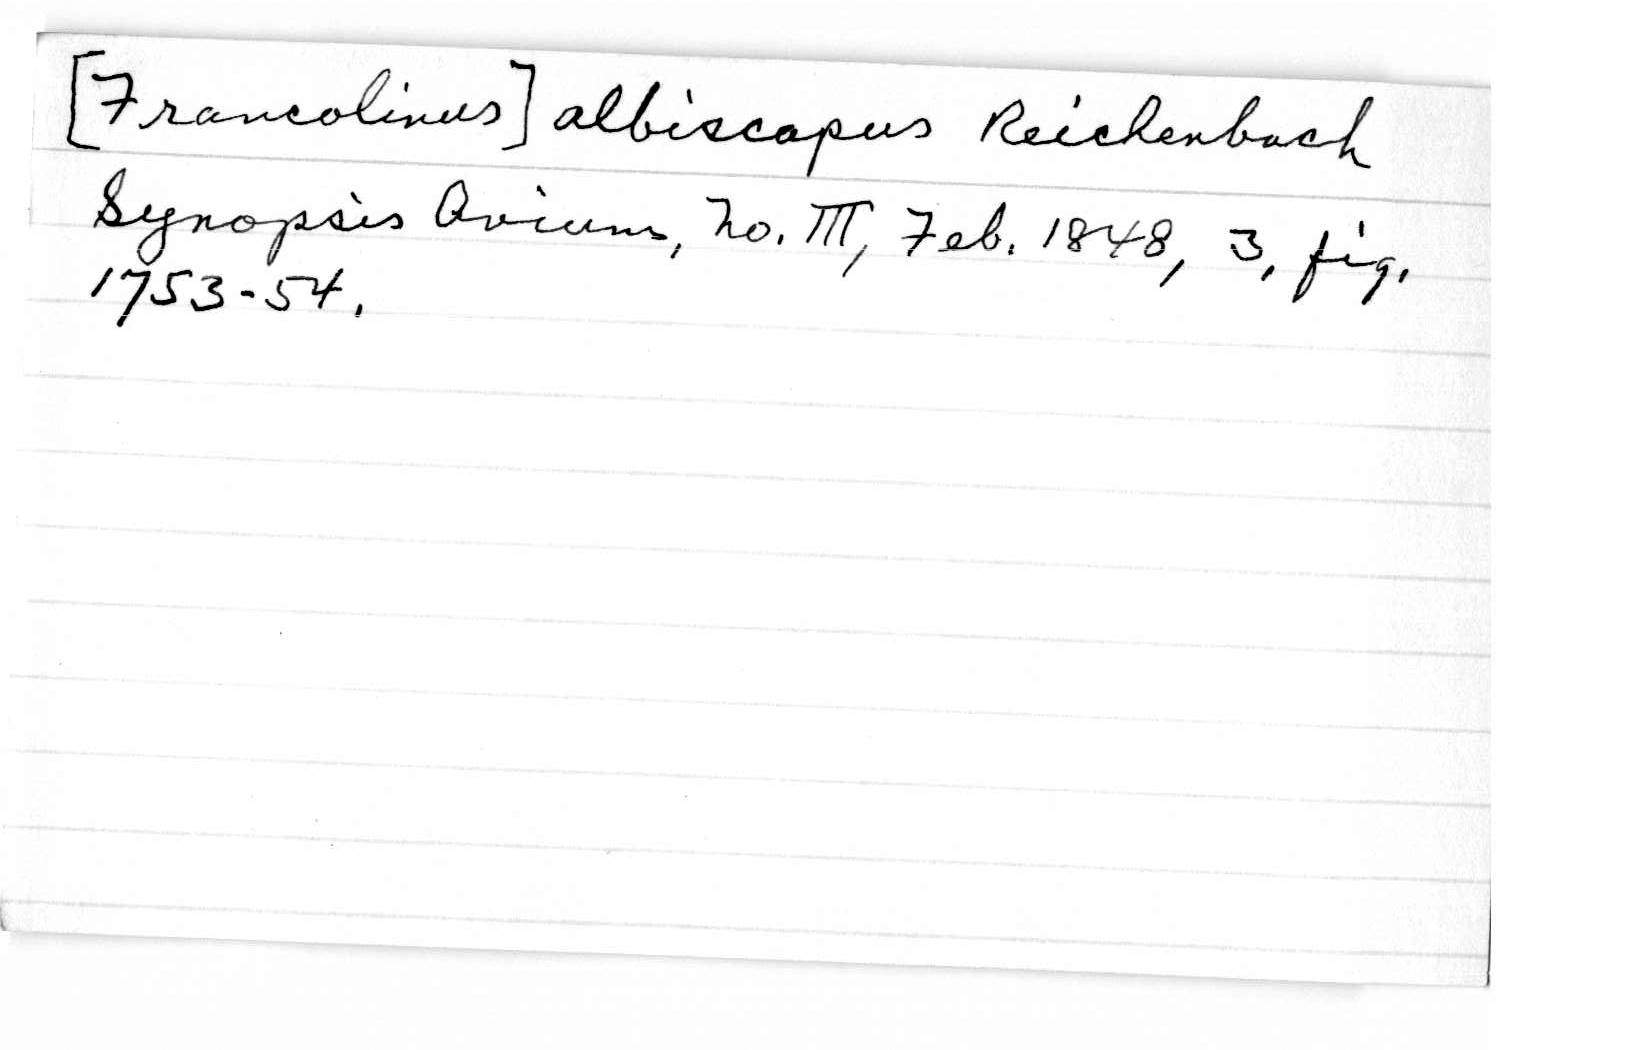 [Francolinus] albiscapus Reichenbach
Synopsis Avium, No. III, Feb. 1848, 3, fig.
1753-54.